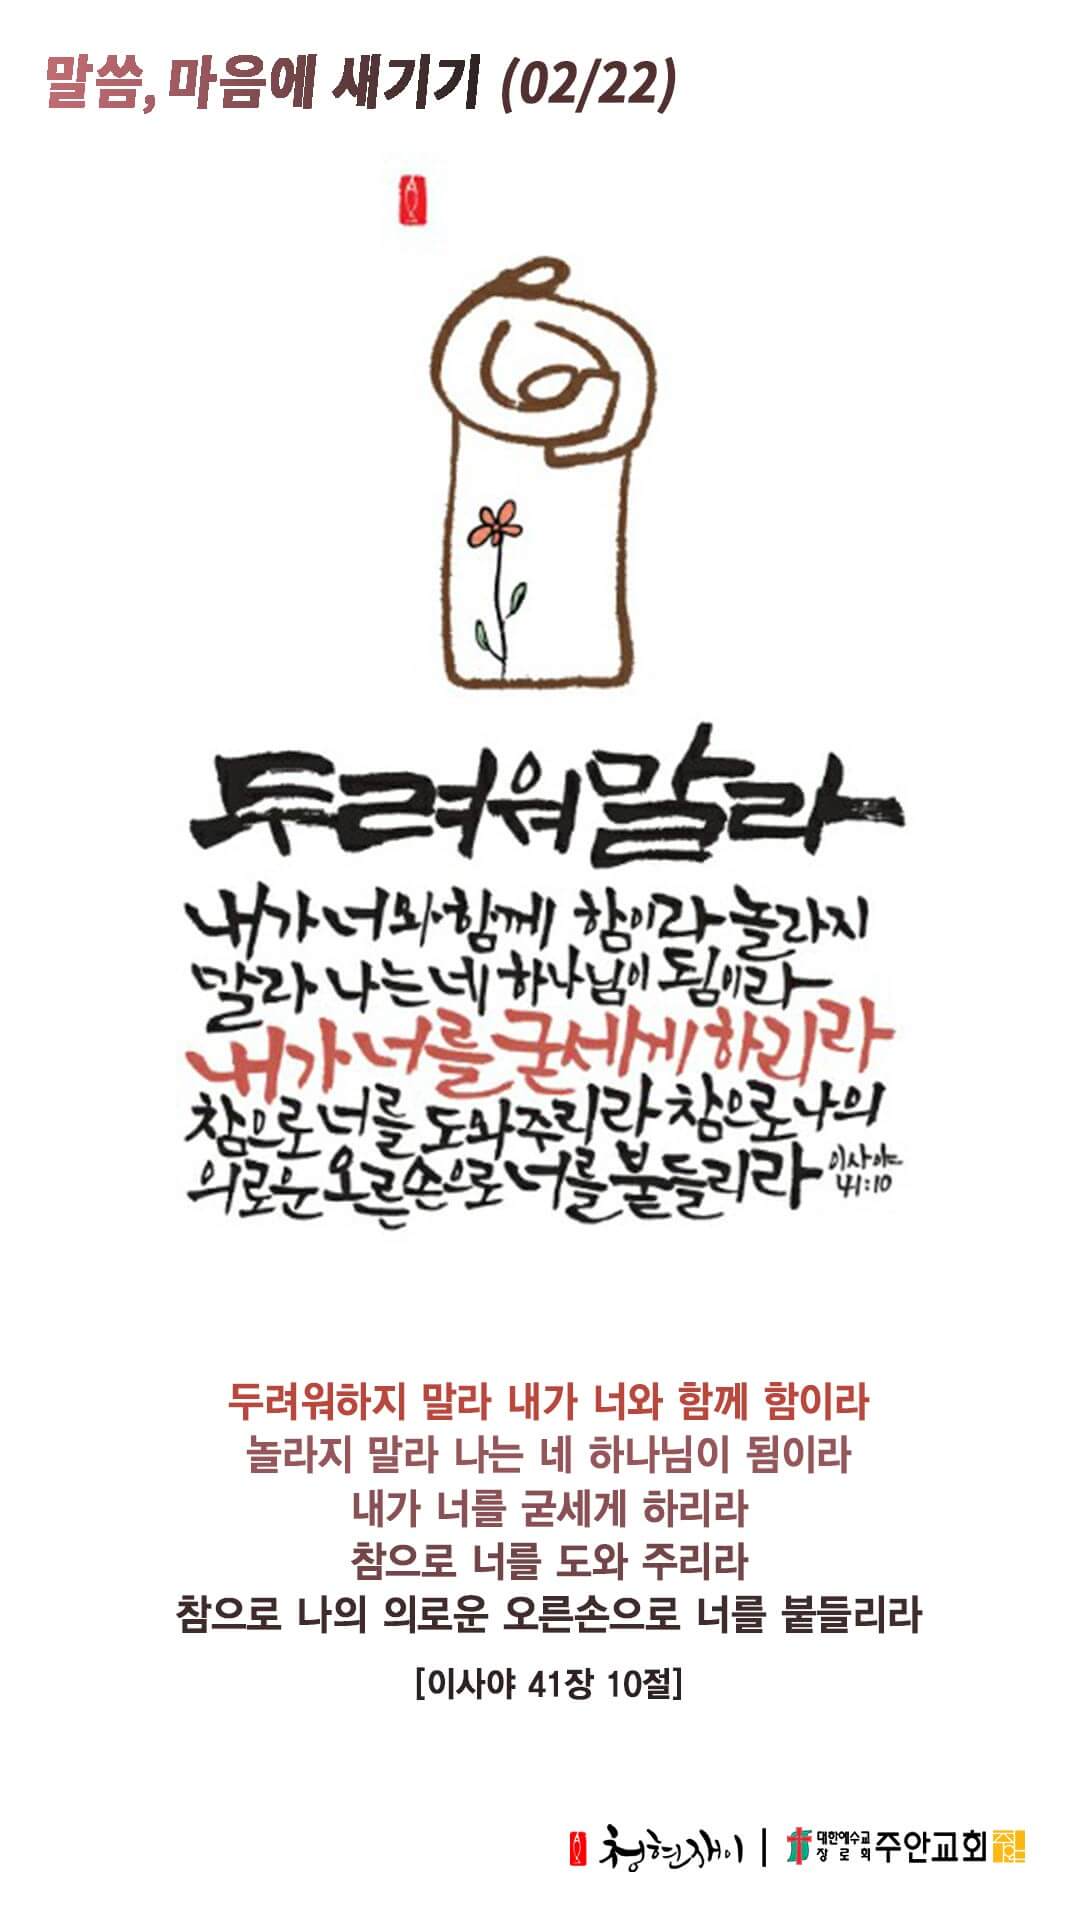 말씀, 마음에 새기기 (02/22)
두려워 말라
내가 너와 함께 함이라 놀라지
말라 나는 네 하나님이 됨이라
내가 너를 굳세게 하리라
참으로 너를 도와주리라 참으로 나의
의로운 오른손으로 너를 붙들리라 이사야
41:10
두려워하지 말라 내가 너와 함께 함이라
놀라지 말라 나는 네 하나님이 됨이라
내가 너를 굳세게 하리라
참으로 너를 도와 주리라
참으로 나의 의로운 오른손으로 너를 붙들리라
[이사야 41장 10절]
청현재이 | 대한예수교
장로회 주안교회